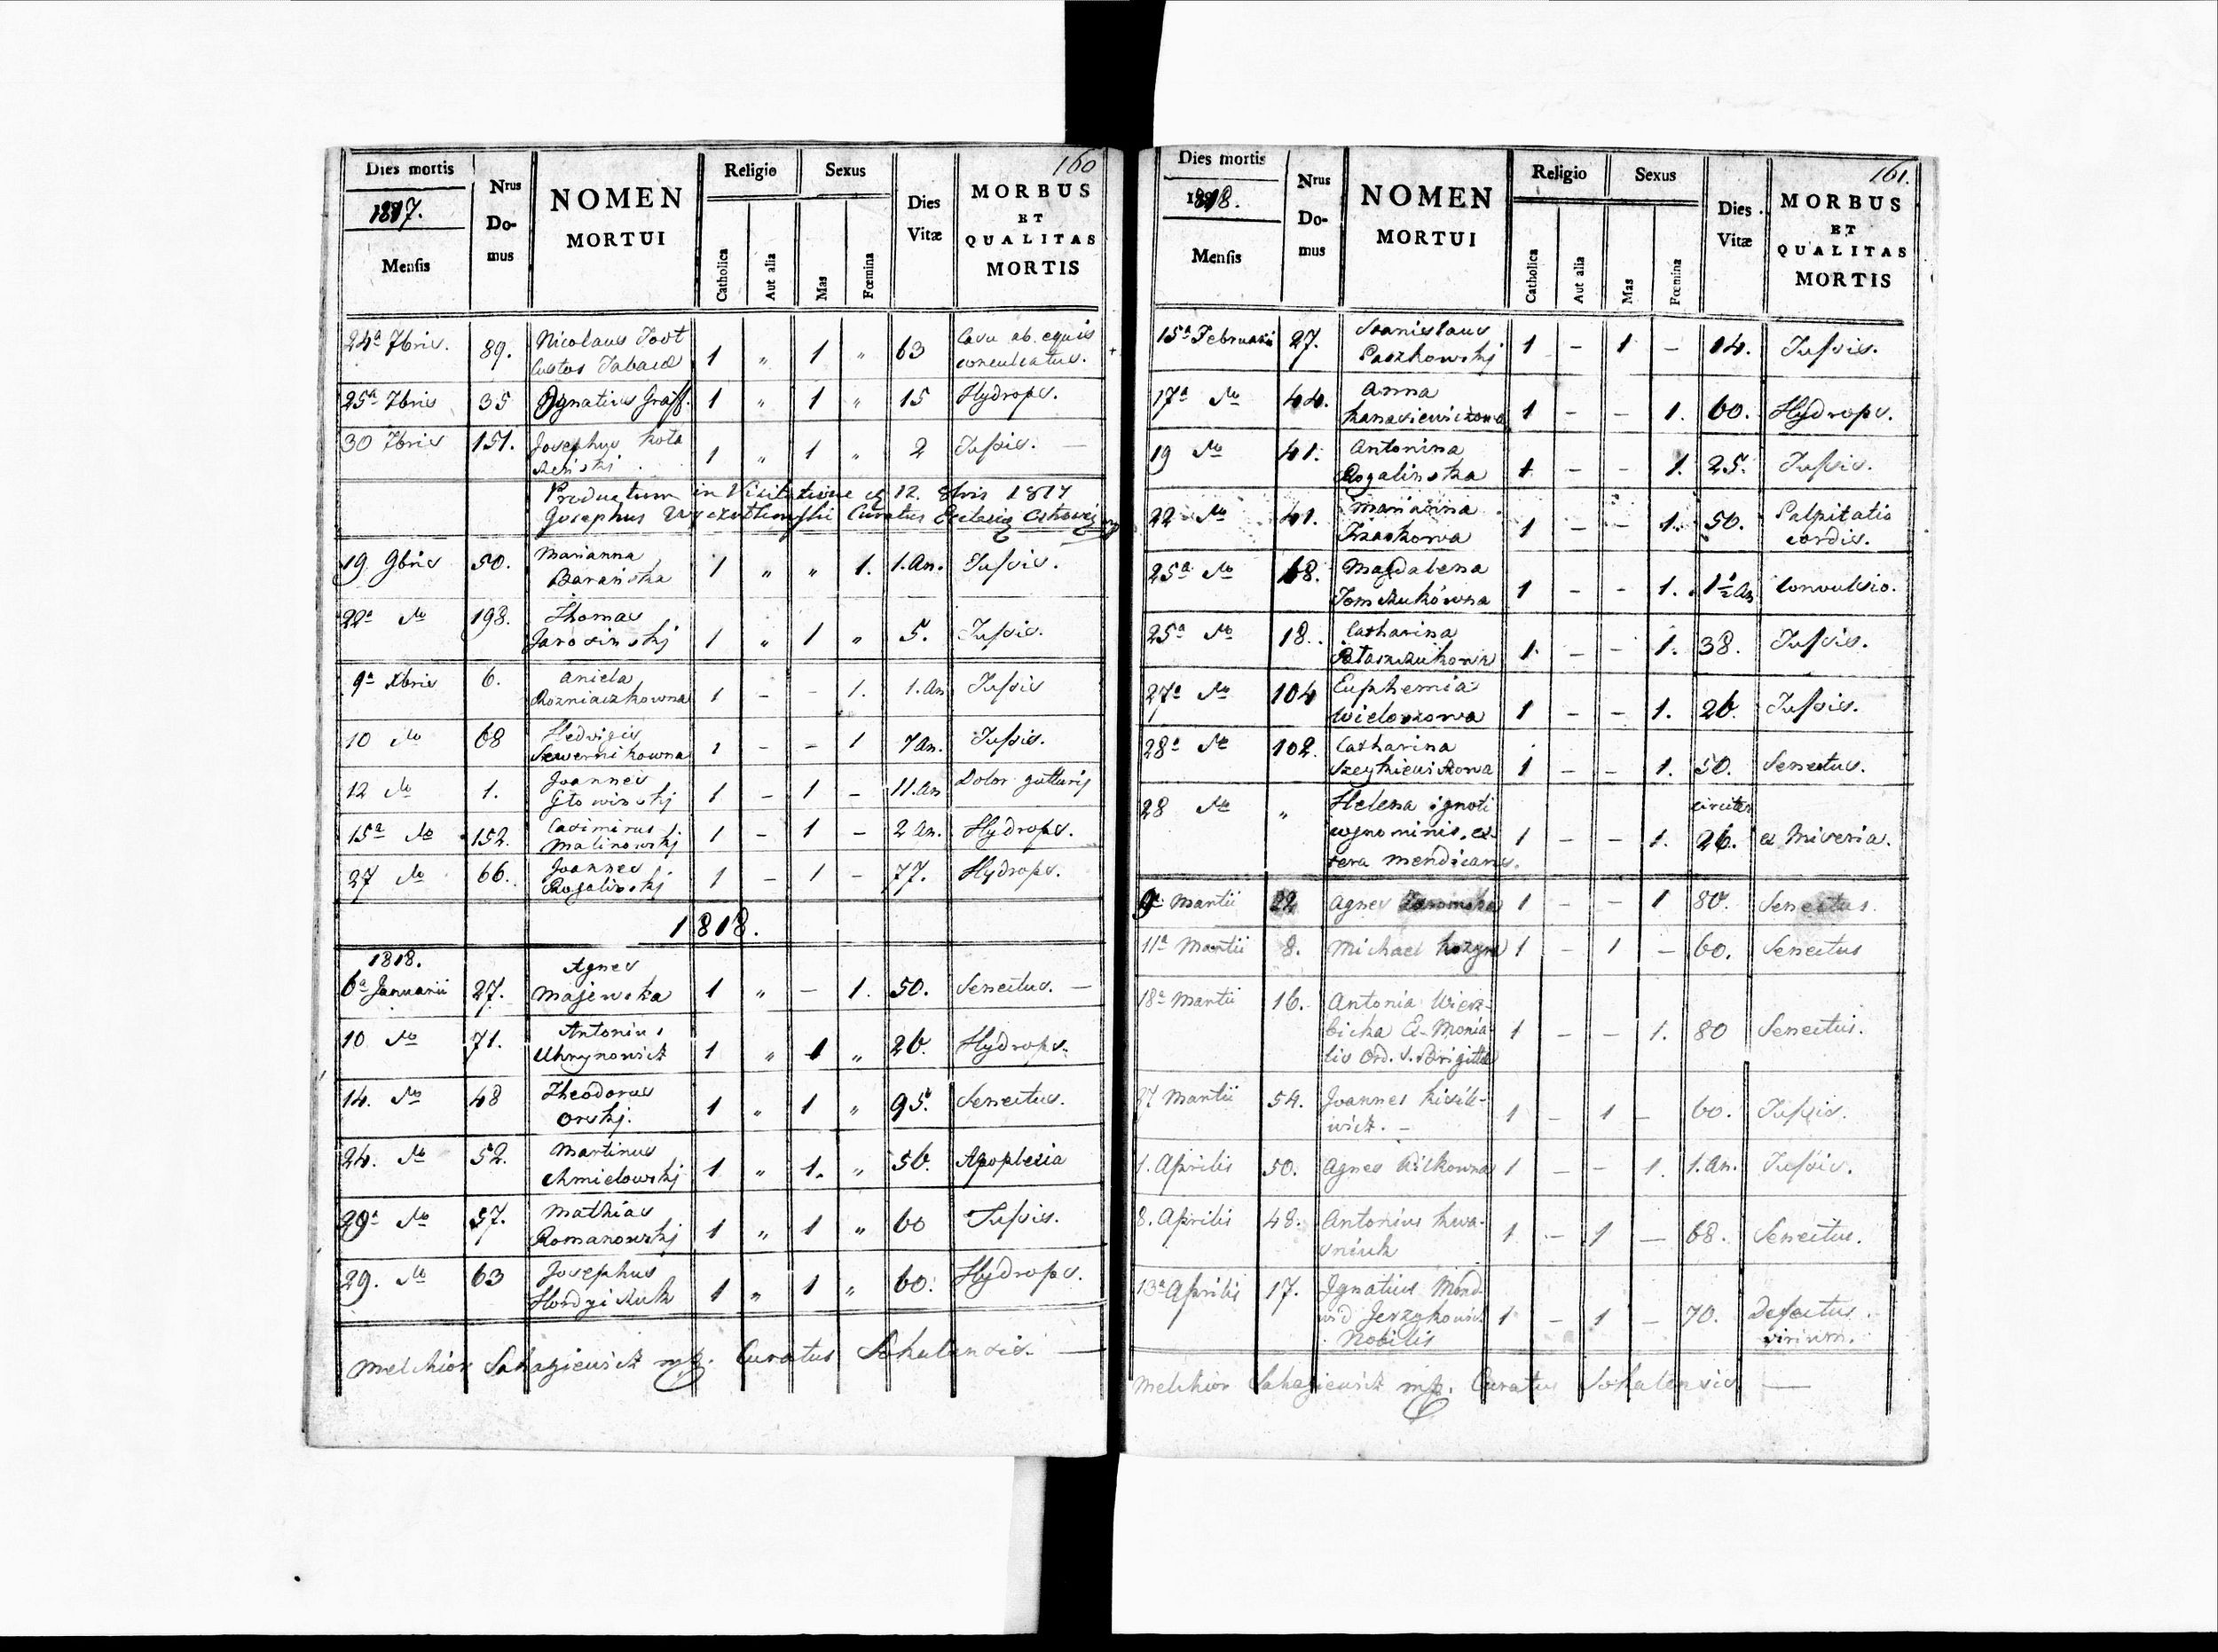 160
Dies mortis
1817.
Mensis
Nrus
Do-
mus
NOMEN
MORTUI
Religio
Catholica
Aut alia
Sexus
Mas
Fœmina
Dies
Vitæ
MORBUS
ET
QUALITAS
MORTIS
24ª 7bris. 89. Nicolaus 1 „ 1 „ 63 Casu ab equis
Custos conculcatus.
25ª 7bris 35 Ignatius Graff. 1 „ 1 „ 15 Hydrops.
30 7bris 151. Josephus 1 „ 1 „ 2 Tussis. —
Productum in Visitatione 12. 8bris 1817
Josephus Curatus Ecclesiæ
19 9bris 50. Marianna 1 „ „ 1. 1.An. Tussis.
Barańska
22ª do 198. Thomas
Jarosinskj 1 „ 1 „ 5. Tussis.
9ª Xbris 6. Aniela
Rozniaczkowna 1 – – 1. 1.An Tussis
10 do 68 Hedvigis
Sewernikowna 1 – – 1 7 An. Tussis.
12 do 1. Joannes
Głowinskj 1 – 1 – 11.An Dolor gutturis
15ª do 152. Casimirus
Malinowskj 1 – 1 – 2 An. Hydrops.
27 do 66. Joannes
Rogalinskj 1 – 1 – 77. Hydrops.
1818.
1818.
6ª Januarii 27. Agnes
Majewska 1 „ – 1. 50. Senectus. —
10 do 71. Antonius
Uhrynowicz 1 „ 1 „ 26. Hydrops.
14. do 48 Theodorus
Orskj. 1 „ 1 „ 95. Senectus.
24. do 52. Martinus
Chmielowskj 1 „ 1. „ 56. Apoplexia
29ª do 57. Mathias
Romanowskj 1 „ 1 „ 60 Tussis.
29. do 63 Josephus
Hordyiczuk 1 „ 1 „ 60. Hydrops.
Melchior Sakagiewicz mp. Curatus Sokalensis. —
161.
Dies mortis
1818.
Mensis
Nrus
Do-
mus
NOMEN
MORTUI
Religio
Catholica
Aut alia
Sexus
Mas
Fœmina
Dies
Vitæ
MORBUS
ET
QUALITAS
MORTIS
15ª Februarii 27. Stanislaus
Paszkowskj 1 – 1 – 14. Tussis.
17ª do 44. Anna
1 – – 1. 60. Hydrops.
19 do 41. Antonina
Rogalinska 1 – – 1. 25. Tussis.
22 do 41. Marianna
1 – – 1. 50. Palpitatio
cordis.
25ª do 68. Magdalena
Tomczukówna 1 – – 1. 1½ An Convulsio.
25ª do 18. Catharina
1. – – 1. 38. Tussis.
27ª do 104 Euphemia
1 – – 1. 26. Tussis.
28ª do 102. Catharina
1 – – 1. 50. Senectus.
28 do „ Helena ignoti circiter
cognominis, ex- 1 – – 1. 26. ex Miseria.
tera mendicans.
9ª Martii 22 Agnes 1 – – 1 80. Senectus.
11ª Martii 8. Michael 1 – 1 – 60. Senectus
18ª Martii 16. Antonia Wierz-
bicka Ex-Monia- 1 – – 1. 80 Senectus.
lis Ord. S. Brigittæ
27 Martii 54. Joannes Kisile-
wicz. – 1 – 1 – 60. Tussis.
1. Aprilis 50. Agnes 1 – – 1. 1.An. Tussis.
8. Aprilis 48. Antonius Kwa-
sniuk 1 – 1 – 68. Senectus.
13ª Aprilis 17. Ignatius
Jerzykowicz 1 – 1 – 70. Defectus
Nobilis virium.
Melchior Sakagiewicz mp. Curatus Sokalensis —